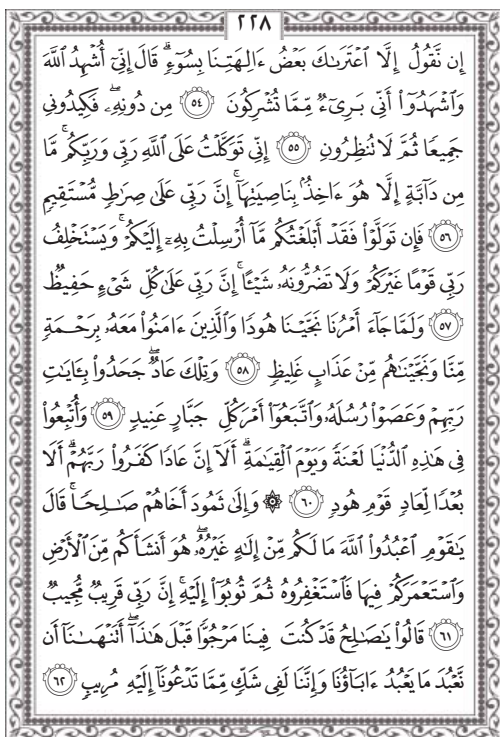 ٢٢٨
إِن نَّقُولُ إِلَّا ٱعْتَرَىٰكَ بَعْضُ ءَالِهَتِنَا بِسُوٓءٍۗ قَالَ إِنِّىٓ أُشْهِدُ ٱللَّهَ
وَٱشْهَدُوٓا۟ أَنِّى بَرِىٓءٌ مِّمَّا تُشْرِكُونَ ٥٤ مِن دُونِهِۦۖ فَكِيدُونِى
جَمِيعًا ثُمَّ لَا تُنظِرُونِ ٥٥ إِنِّى تَوَكَّلْتُ عَلَى ٱللَّهِ رَبِّى وَرَبِّكُمۚ مَّا
مِن دَآبَّةٍ إِلَّا هُوَ ءَاخِذٌۢ بِنَاصِيَتِهَآۚ إِنَّ رَبِّى عَلَىٰ صِرَٰطٍ مُّسْتَقِيمٍ
٥٦ فَإِن تَوَلَّوْا۟ فَقَدْ أَبْلَغْتُكُم مَّآ أُرْسِلْتُ بِهِۦٓ إِلَيْكُمْۚ وَيَسْتَخْلِفُ
رَبِّى قَوْمًا غَيْرَكُمْ وَلَا تَضُرُّونَهُۥ شَيْـًٔاۚ إِنَّ رَبِّى عَلَىٰ كُلِّ شَىْءٍ حَفِيظٌ
٥٧ وَلَمَّا جَآءَ أَمْرُنَا نَجَّيْنَا هُودًا وَٱلَّذِينَ ءَامَنُوا۟ مَعَهُۥ بِرَحْمَةٍ
مِّنَّا وَنَجَّيْنَٰهُم مِّنْ عَذَابٍ غَلِيظٍ ٥٨ وَتِلْكَ عَادٌۖ جَحَدُوا۟ بِـَٔايَٰتِ
رَبِّهِمْ وَعَصَوْا۟ رُسُلَهُۥ وَٱتَّبَعُوٓا۟ أَمْرَ كُلِّ جَبَّارٍ عَنِيدٍ ٥٩ وَأُتْبِعُوا۟
فِى هَٰذِهِ ٱلدُّنْيَا لَعْنَةً وَيَوْمَ ٱلْقِيَٰمَةِۗ أَلَآ إِنَّ عَادًا كَفَرُوا۟ رَبَّهُمْۗ أَلَا
بُعْدًا لِّعَادٍ قَوْمِ هُودٍ ٦٠ ۞ وَإِلَىٰ ثَمُودَ أَخَاهُمْ صَٰلِحًاۚ قَالَ
يَٰقَوْمِ ٱعْبُدُوا۟ ٱللَّهَ مَا لَكُم مِّنْ إِلَٰهٍ غَيْرُهُۥۖ هُوَ أَنشَأَكُم مِّنَ ٱلْأَرْضِ
وَٱسْتَعْمَرَكُمْ فِيهَا فَٱسْتَغْفِرُوهُ ثُمَّ تُوبُوٓا۟ إِلَيْهِۚ إِنَّ رَبِّى قَرِيبٌ مُّجِيبٌ
٦١ قَالُوا۟ يَٰصَٰلِحُ قَدْ كُنتَ فِينَا مَرْجُوًّا قَبْلَ هَٰذَآۖ أَتَنْهَىٰنَآ أَن
نَّعْبُدَ مَا يَعْبُدُ ءَابَآؤُنَا وَإِنَّنَا لَفِى شَكٍّ مِّمَّا تَدْعُونَآ إِلَيْهِ مُرِيبٍ ٦٢